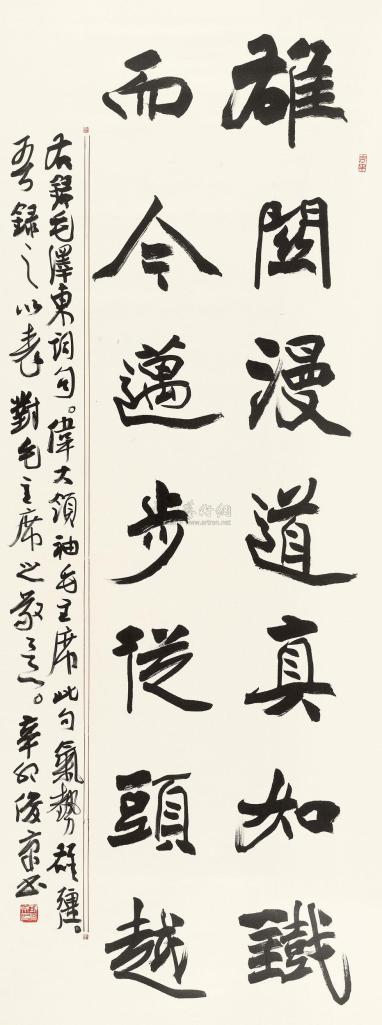 雄關漫道真如鐵
而今邁步從頭越
右錄毛澤東詞句。偉大領袖毛主席此句氣勢雄疆。
吾錄之以表對毛主席之敬意。辛卯俊京書
雅昌藝術網
www.artron.net